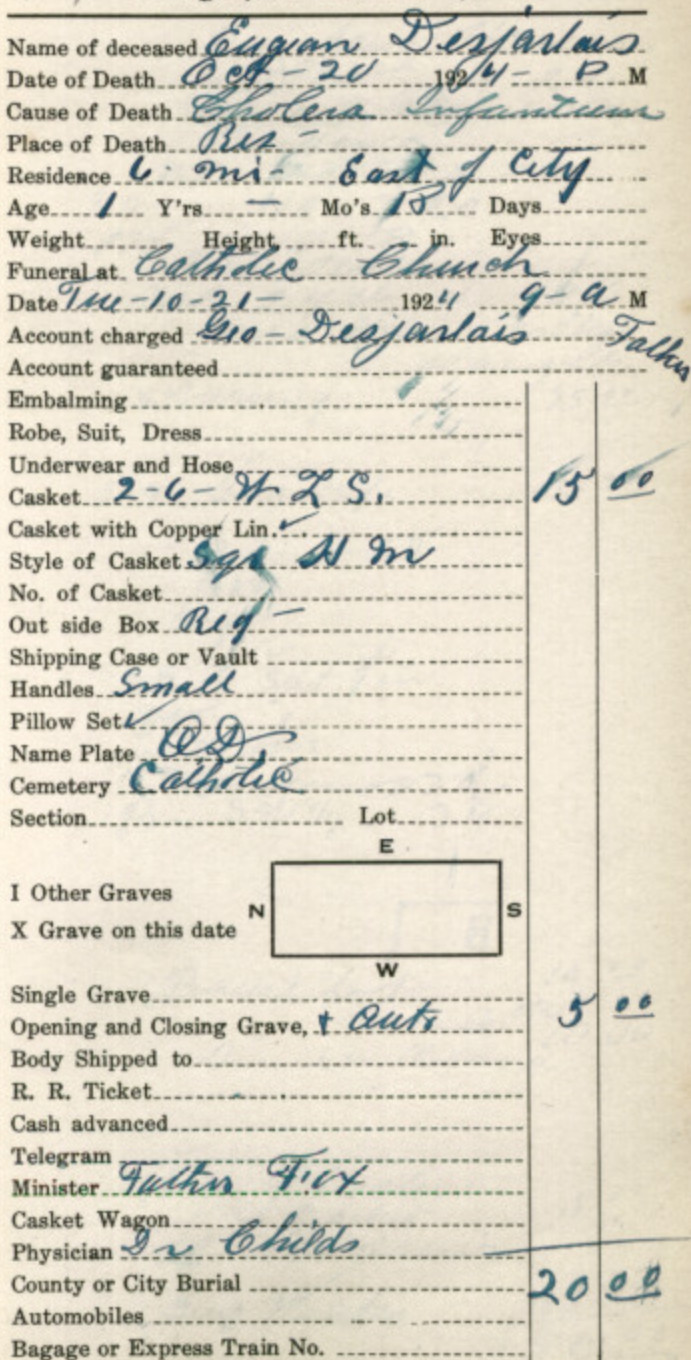 Name of deceased Eugian Desjarlais
Date of Death Oct - 20 1924 - P M
Cause of Death Cholera Infantum
Place of Death Res -
Residence 6 mi - East of City
Age 1 Y'rs — Mo's 18 Days
Weight Height, ft. in. Eyes
Funeral at Catholic Church
Date Tue - 10 - 21 - 1924 9 - a M
Account charged Geo - Desjarlais Father
Account guaranteed
Embalming
Robe, Suit, Dress
Underwear and Hose
Casket 2-6 - W L S. 15 00
Casket with Copper Lin. ✓
Style of Casket Sqr H M
No. of Casket
Out side Box Reg -
Shipping Case or Vault
Handles Small
Pillow Set ✓
Name Plate O D
Cemetery Catholic
Section Lot
E
I Other Graves
N S
X Grave on this date
W
Single Grave
Opening and Closing Grave, + Auto 5 00
Body Shipped to
R. R. Ticket
Cash advanced
Telegram
Minister Father Fox
Casket Wagon
Physician Dr Childs
County or City Burial 20 00
Automobiles
Bagage or Express Train No.